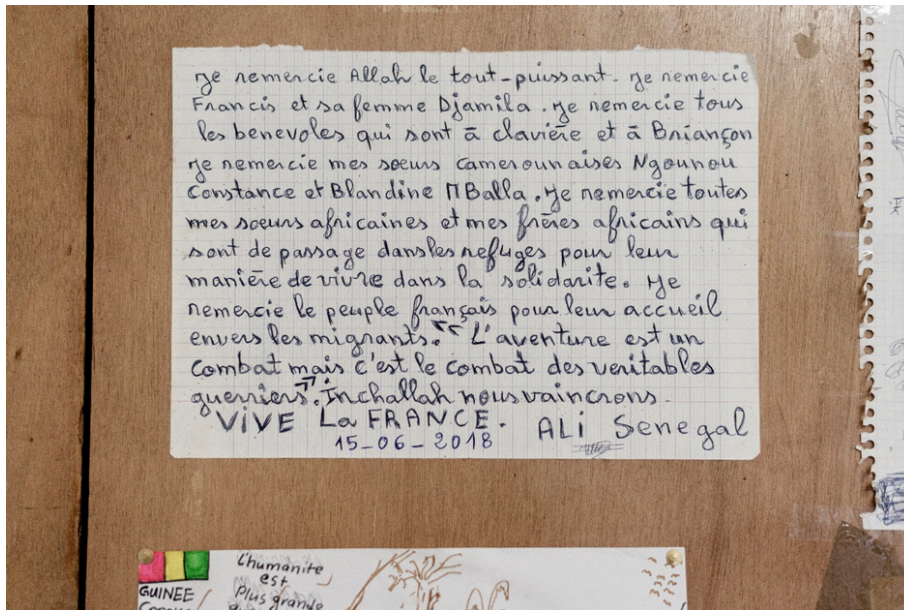 Je remercie Allah le tout-puissant. Je remercie
Francis et sa femme Djamila. Je remercie tous
les benevoles qui sont à clavière et à Briançon
Je remercie mes sœurs camerounaises Ngounou
Constance et Blandine MBalla. Je remercie toutes
mes sœurs africaines et mes frères africains qui
sont de passage dans les refuges pour leur
manière de vivre dans la solidarite. Je
remercie le peuple français pour leur accueil
envers les migrants. « L'aventure est un
combat mais c'est le combat des veritables
guerriers ». Inchallah nous vaincrons.
VIVE La FRANCE. ALi Senegal
15-06-2018
L'humanite
est
GUINEE
Plus grande